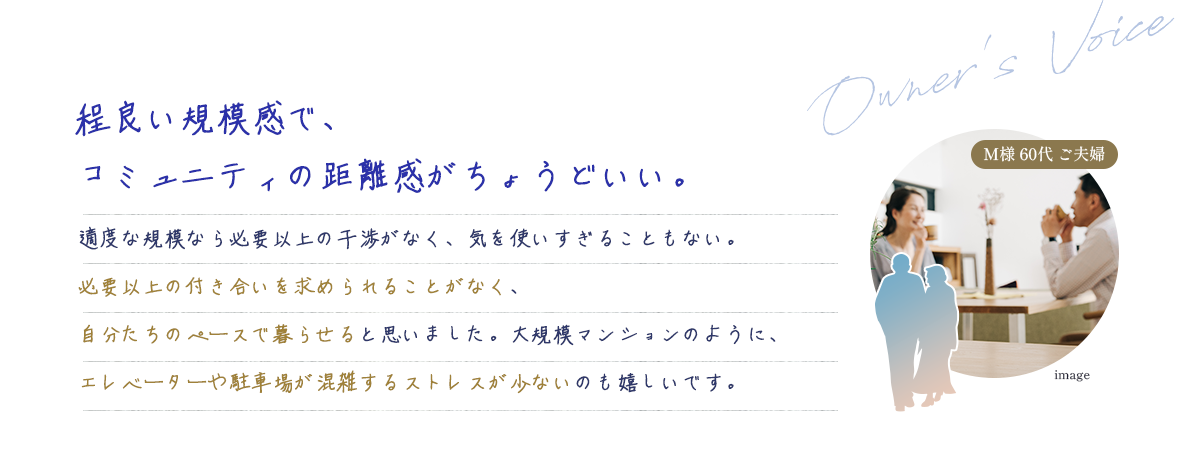 Owner's Voice
程良い規模感で、
コミュニティの距離感がちょうどいい。
M様 60代 ご夫婦
適度な規模なら必要以上の干渉がなく、気を使いすぎることもない。
必要以上の付き合いを求められることがなく、
自分たちのペースで暮らせると思いました。大規模マンションのように、
エレベーターや駐車場が混雑するストレスが少ないのも嬉しいです。
image